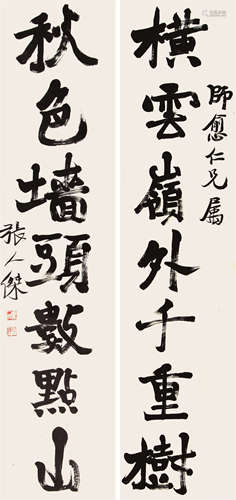 橫雲嶺外千重樹
師愈仁兄屬
秋色墻頭數點山
張人傑